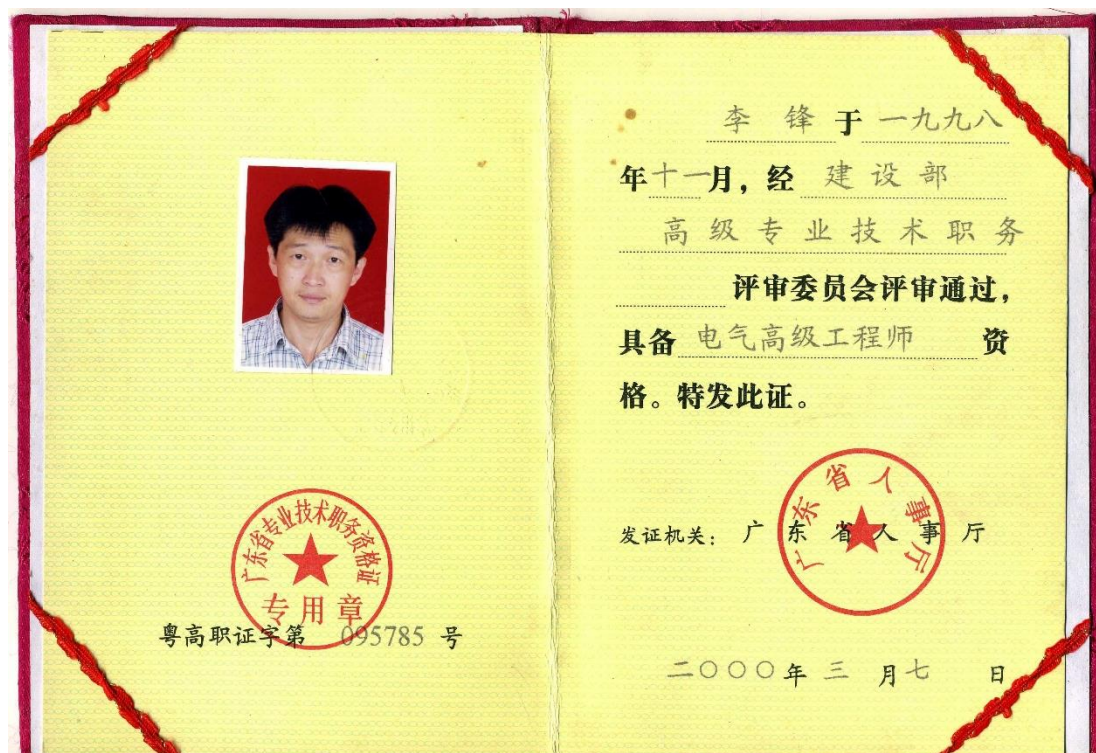 广东省专业技术职务资格证
专用章
粤高职证字第 095785 号
李 锋 于 一九九八
年十一月，经 建设部
高级专业技术职务
评审委员会评审通过，
具备 电气高级工程师 资
格。特发此证。
广东省人事厅
发证机关：广东省人事厅
二〇〇〇年 三 月七 日